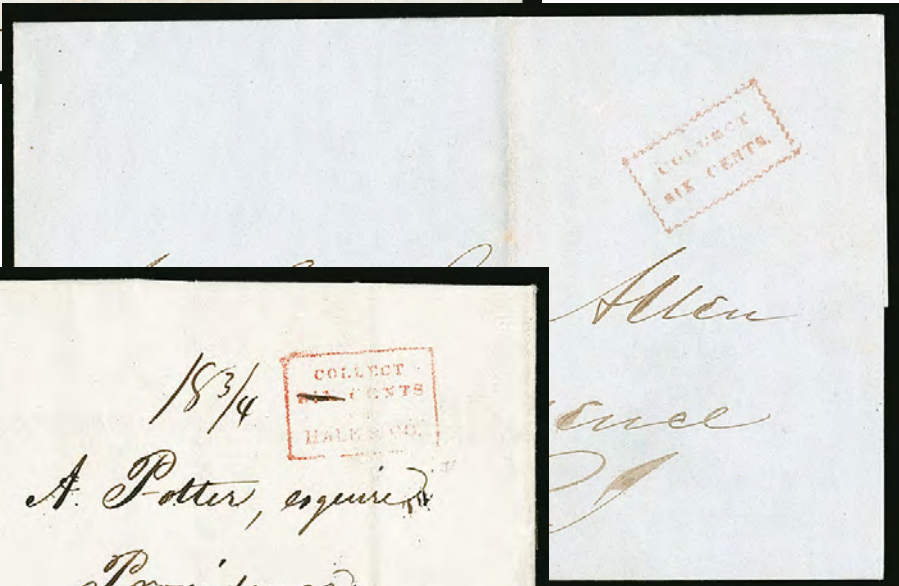 COLLECT
SIX CENTS.
Allen
18 3/4
COLLECT
SIX CENTS
HALE & CO.
A. Potter, esquire